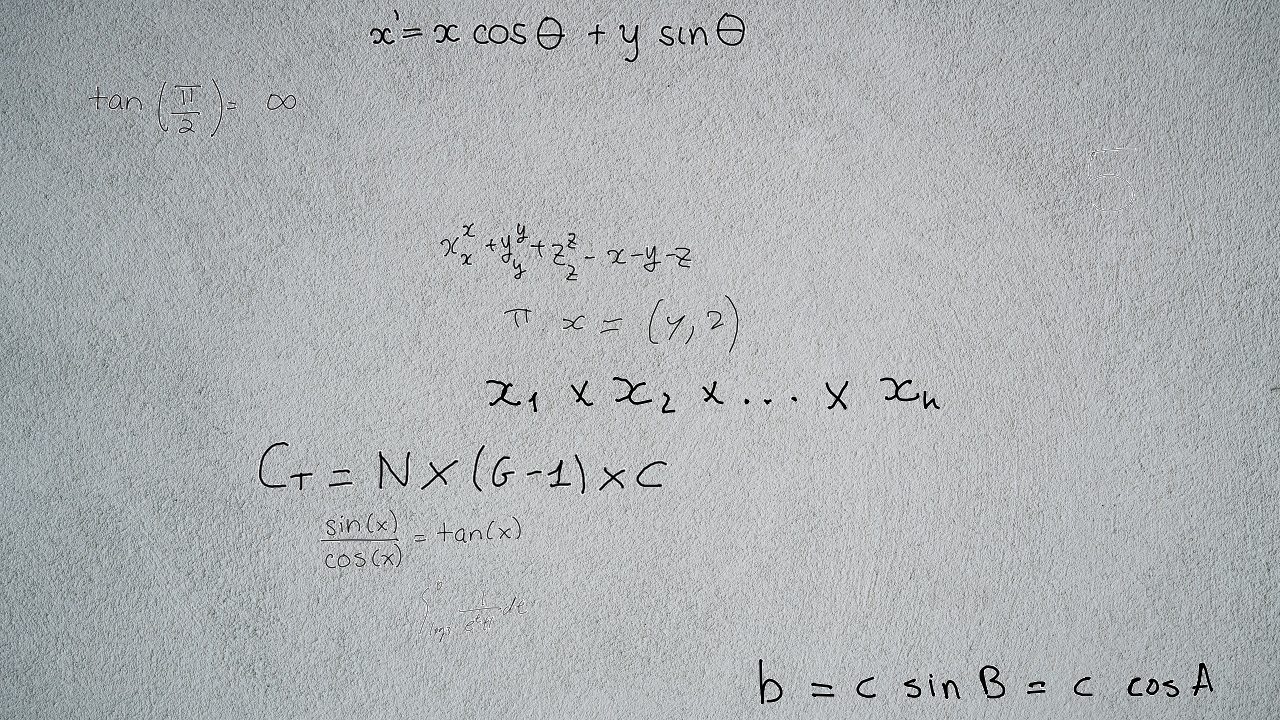 x' = x cos θ + y sin θ
tan (π/2) = ∞
x_x^x + y_y^y + z_z^z - x - y - z
π x = (y, 2)
x₁ × x₂ × ... × xₙ
C_T = N × (G - 1) × C
sin(x)/cos(x) = tan(x)
b = c sin B = c cos A